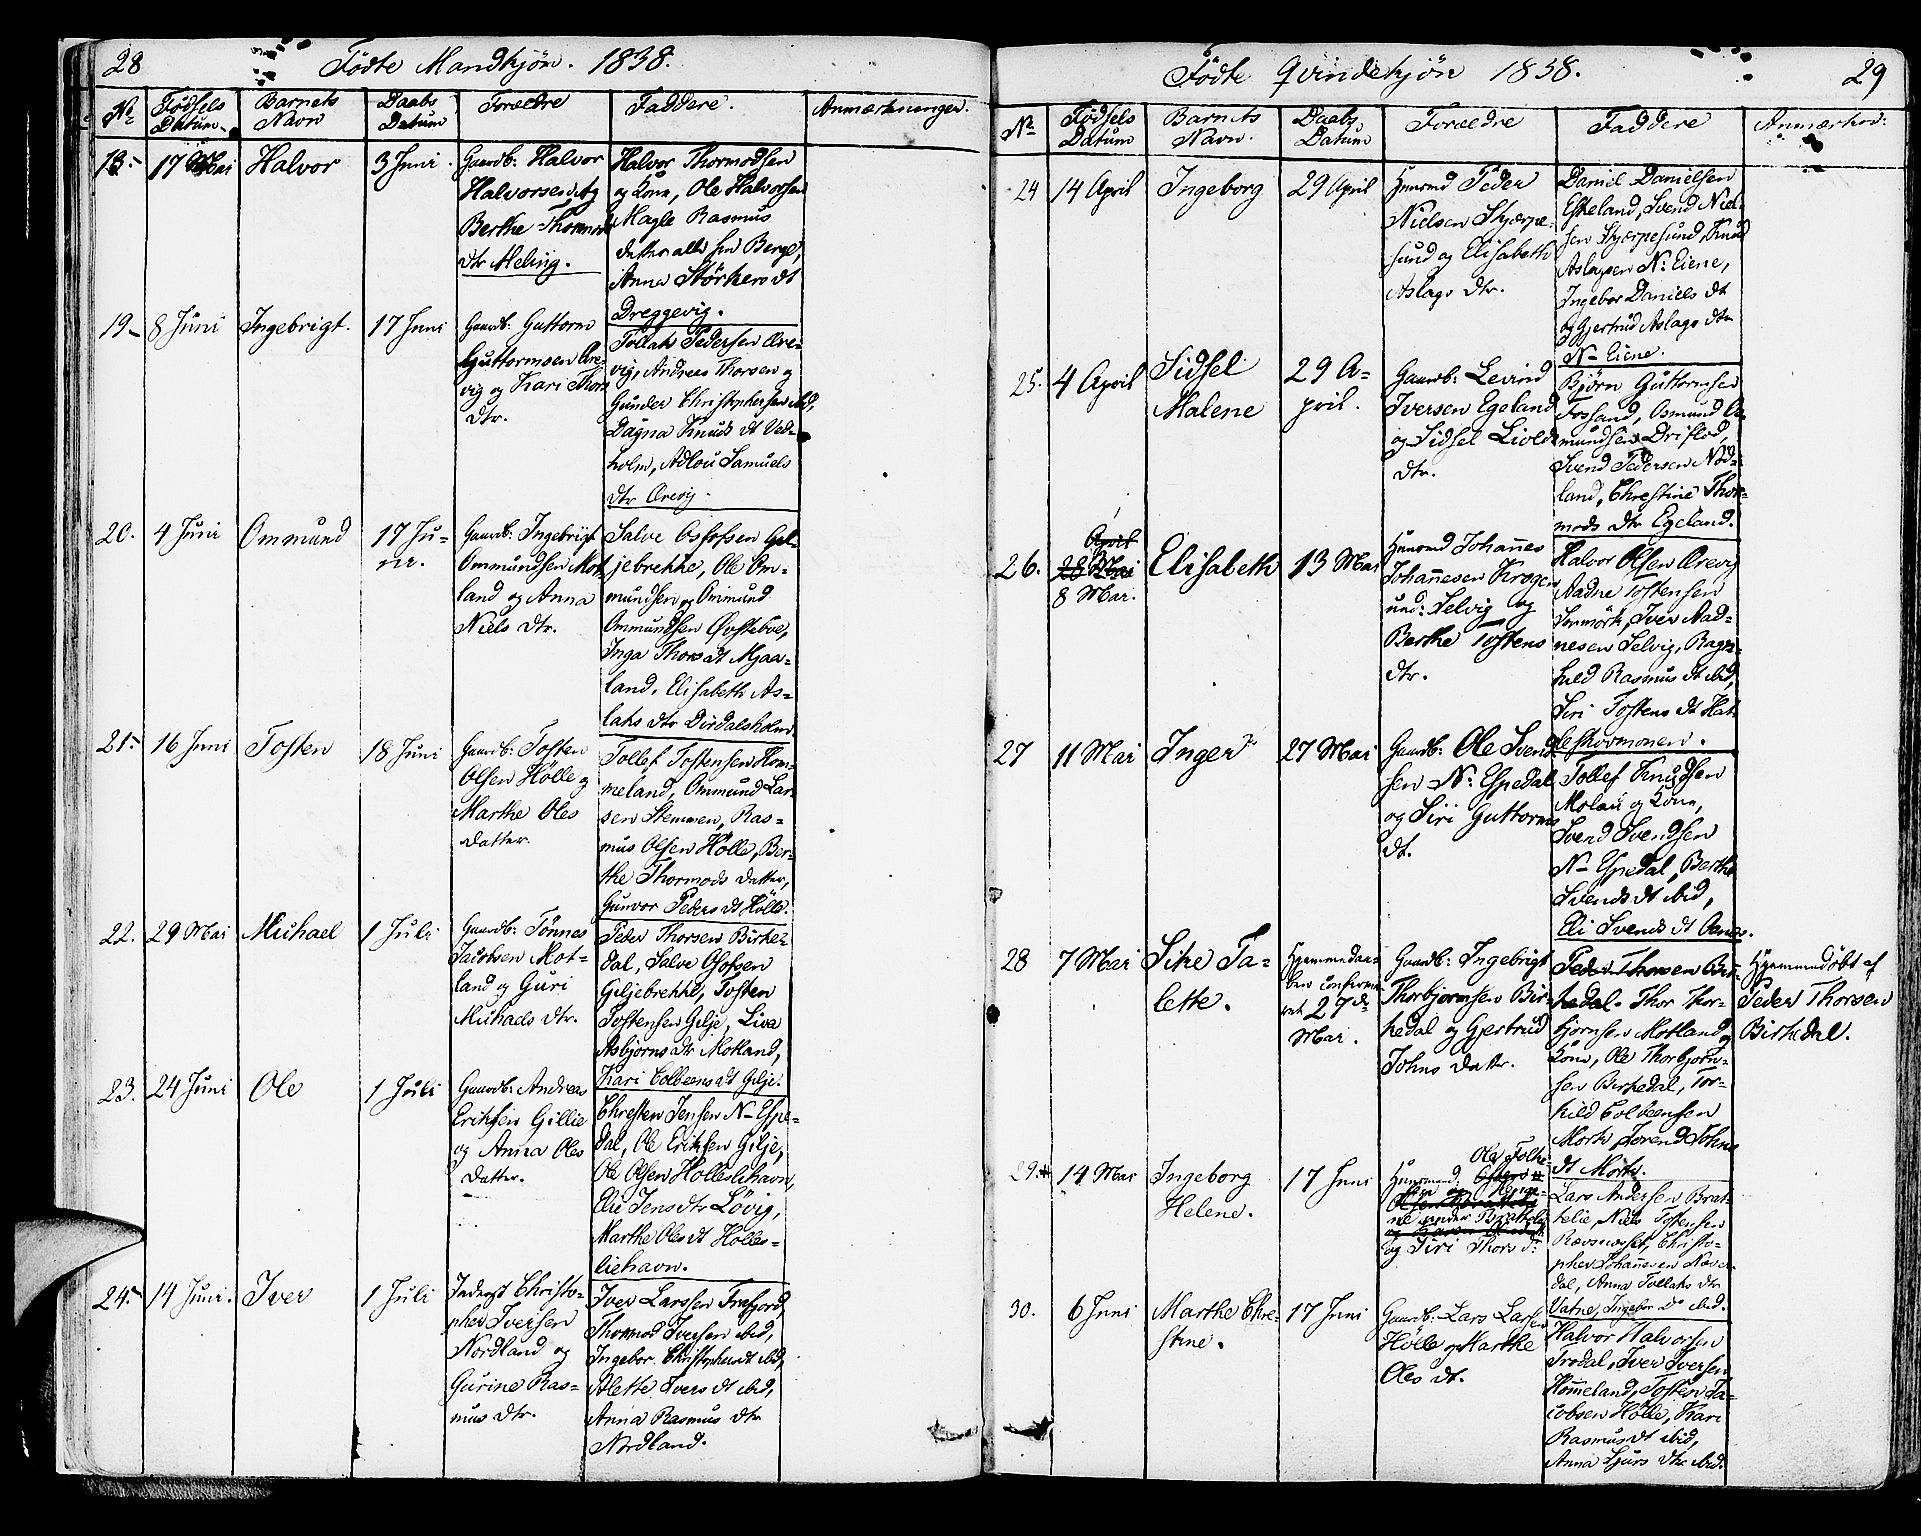 28
Fødte Mandkjøn. 1838.
No
Fødsels Datum
Barnets Navn
Daabs Datum
Forældre
Faddere.
Anmærkninger.
18.
17 Mai
Halvor
3 Juni.
Gaardb: Halvor
Halvorsen og
Berthe Thormods
dtr Meling.
Halvor Thormodsen
og Kone, Ole Halvorsen
Magle Rasmus
datter alle fra Berge,
Anna Störkers dt
Dreggevig.
19
8 Juni
Ingebrigt.
17 Juni
Gaardb: Guttorm
Guttormsen Øre-
vig og Kari Thors
dtr.
Tollak Pedersen Øre-
vig, Andreas Thorsen og
Gunder Christophersen ibid,
Dagna Knuds dt Ved-
holm, Adlou Samuels
dtr Ørevig.
20.
4 Juni
Ommund
17 Ju-
ni.
Gaardb: Ingebrigt
Ommundsen Mot-
land og Anna
Niels dtr.
Salve Osfofsen Gil-
jebrekke, Ole Om-
mundsen og Ommund
Ommundsen Øvstebøe,
Inga Thors dt Mjaa-
land, Elisabeth As-
laks dtr Dirdalsholm.
21.
16 Juni
Tosten
18 Juni
Gaardb: Tosten
Olsen Hölle og
Marthe Oles
datter.
Tollef Tostensen Hom-
meland, Ommund Lar-
sen Stemmen, Ras-
mus Olsen Hölle, Ber-
the Thormods datter,
Gunvor Peders dt Hölle.
22.
29 Mai
Michael
1 Juli
Gaardb: Tönnes
Jacobsen Mot-
land og Guri
Michaels dtr.
Peder Thorsen Birke-
dal, Salve Osofsen
Giljebrekke, Tosten
Tostensen Gilje, Liva
Asbjørns dtr Motland,
Kari Colbeens dt Gilje.
23.
24 Juni
Ole
1 Juli
Gaardb: Andreas
Eriksen Gillie
og Anna Oles
datter.
Christen Jensen N. Espe-
dal, Ole Eriksen Gilje,
Ole Olsen Hölleslihavn,
Eli Jens dtr Lövig,
Marthe Oles dt Hölles-
liehavn.
24.
14 Juni.
Iver
1 Juli
Inderst Christo-
pher Iversen
Nordland og
Gurine Ras-
mus dtr.
Iver Larssen Frafjord,
Thormod Iversen ibid,
Ingebor Christophers dt ibid,
Alette Ivers dt ibid,
Anna Rasmus dtr
Nordland.
Fødte Qvindekjøn 1838.
29
No
Fødsels Datum
Barnets Navn.
Daabs Datum
Forældre
Faddere
Anmærkn:
24
14 April
Ingeborg
29 April
Huusmd Peder
Nielsen Skjærpe-
sund og Elisabeth
Aslags dtr.
Daniel Danielsen
Eskeland, Svend Niel-
sen Skjærpesund, Knud
Aslagsen N. Eiene,
Ingebor Daniels dt
og Gjertrud Aslags dtr
N. Eiene.
25.
4 April
Sidsel
Malene
29 A-
pril.
Gaardb: Levind
Iversen Egeland
og Sidsel Livids
dtr.
Bjørn Guttormsen
Fosland, Osmund Os-
mundsen Driflod,
Svend Pedersen Nød-
land, Chrestine Thor-
mods dtr Egeland.
26.
April
28 Mai
8 Mai.
Elisabeth
13 Mai
Huusmd Johannes
Johannesen Kragen
und: Selvig og
Berthe Tostens
dtr.
Halvor Olsen Ørevig
Aadne Tostensen
Sormörk, Iver Aad-
nesen Selvig, Ragn-
hild Rasmus dt ibid,
Siri Tostens dt Hat-
leskormonen.
27
11 Mai
Inger
27 Mai
Gaardb: Ole Svend-
sen N. Espedal
og Siri Guttorms
dt.
Tollef Knudsen
Molau og Kone,
Svend Svendsen
N. Espedal, Berthe
Svends dt ibid,
Eli Svends dt Oanes.
28
7 Mai
Sike Ta-
lette.
Hjemmedaa-
ben confirme-
ret 27de
Mai.
Gaardb: Ingebrigt
Thorbjørnsen Bir-
kedal og Gjertrud
Johns datter.
Peder Thorsen Bir-
kedal. Thor Thor-
bjørnsen Motland og
Kone, Ole Thorbjørn-
sen Birkedal, Tor-
kild Colbeensen
Mork, Sorend Johns
dt Mork.
Hjemmedøbt af
Peder Thorsen
Birkedal.
29.
14 Mai
Ingeborg
Helene.
17 Juni
Ole Folke-
Huusmand
og Siri Thors dt
Lars Andersen Brat-
telie, Niels Tostensen
Rævsnæsset, Christo-
pher Johannesen Næver-
dal, Anna Tollaks dtr
Vatne, Ingebor dt ibid.
30.
6 Juni
Marthe Chre-
stine.
17 Juni
Gaardb: Lars Larsen
Hölle og Marthe
Oles dt.
Halvor Halvorsen
Frodal, Iver Iversen
Hommeland, Tosten Ja-
cobsen Hölle, Kari
Rasmus dt ibid,
Anna Sjurs dtr ibid.